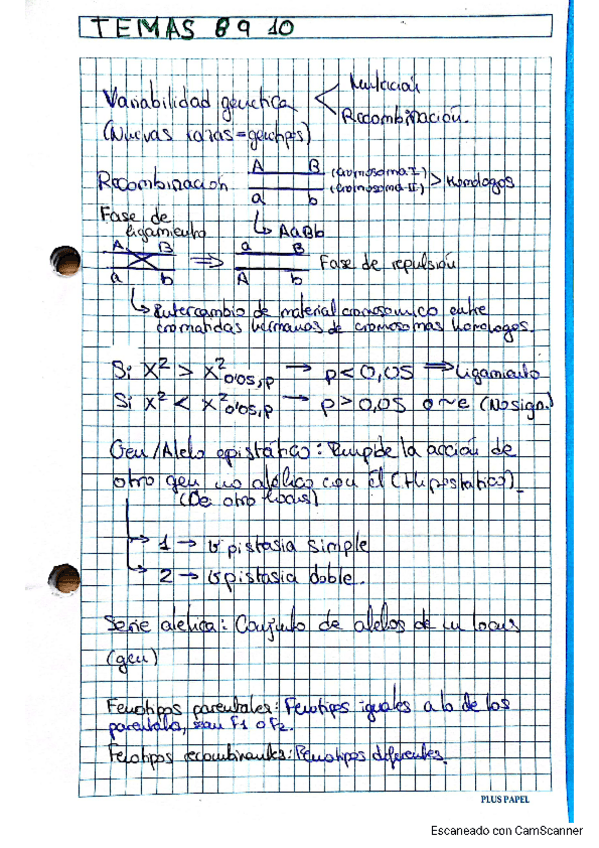 TEMAS 8 9 10
Variabilidad genetica < Mutación
Recombinación.
(Nuevas razas = genotipos)
Recombinacion A B (Cromosoma I) > Homologos
a b (Cromosoma II)
Fase de ligamiento ↳ AaBb
A B ⇒ a B Fase de repulsión
a b A b
↳ Intercambio de material cromosomico entre
cromatidas hermanas de cromosomas homologos.
Si X² > X²0'05,p → p<0,05 ⇒ Ligamiento
Si X² < X²0'05,p → p>0,05 (No sign.)
Gen/Alelo epistático: Impide la acción de
otro gen no alélico con él (Hipostatico)
(De otro locus)
→ 1 → Epistasia simple
→ 2 → Epistasia doble.
Serie alelica: Conjunto de alelos de un locus
(gen)
Fenotipos parentales: Fenotipos iguales a lo de los
parentales, sean F1 o F2.
Fenotipos recombinantes: Fenotipos diferentes.
PLUS PAPEL
Escaneado con CamScanner